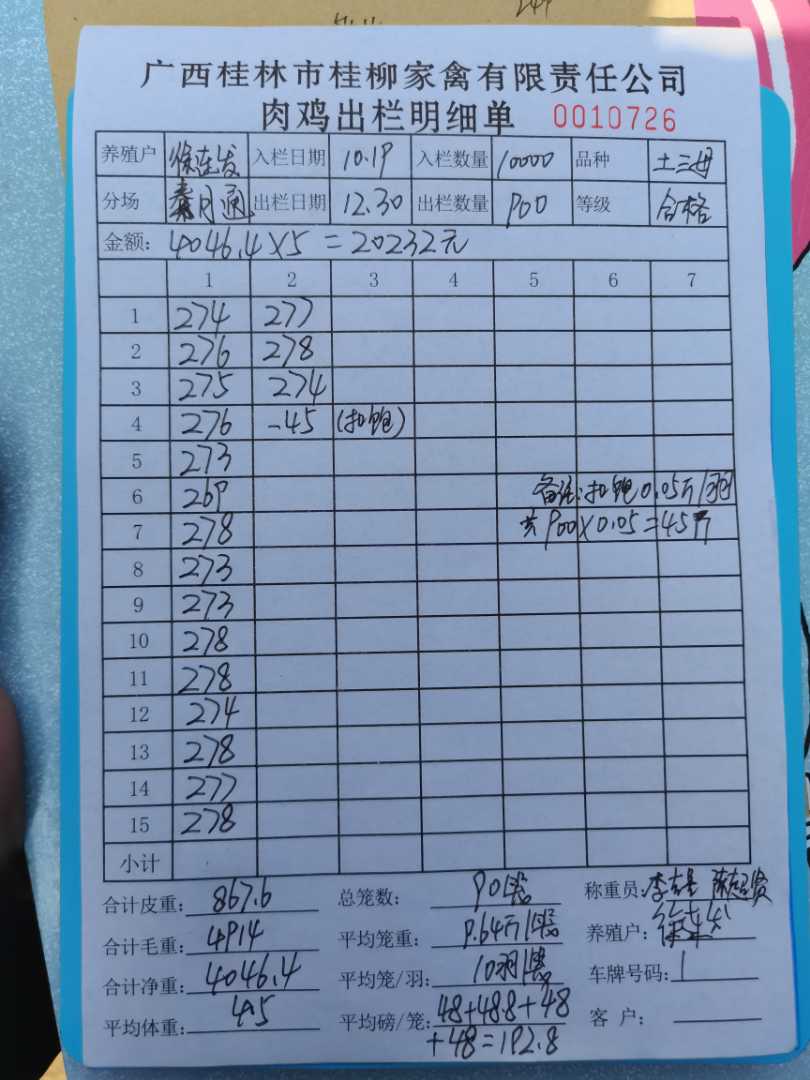 广西桂林市桂柳家禽有限责任公司
肉鸡出栏明细单 0010726
养殖户 徐连发 入栏日期 10.19 入栏数量 10000 品种 土三母
分场 出栏日期 12.30 出栏数量 900 等级 合格
金额: 4046.4×5=20232元
1 2 3 4 5 6 7
1 274 277
2 276 278
3 275 274
4 276 -45 (扣饱)
5 273
6 269 备注:扣饱0.05斤/羽
7 278 共900×0.05=45斤
8 273
9 273
10 278
11 278
12 274
13 278
14 277
15 278
小计
合计皮重: 867.6 总笼数: 90 称重员:
合计毛重: 4914 平均笼重: 9.64斤/ 养殖户:
合计净重: 4046.4 平均笼/羽: 10羽/ 车牌号码:
平均体重: 4.5 平均磅/笼: 48+48.8+48 客 户:
+48=192.8